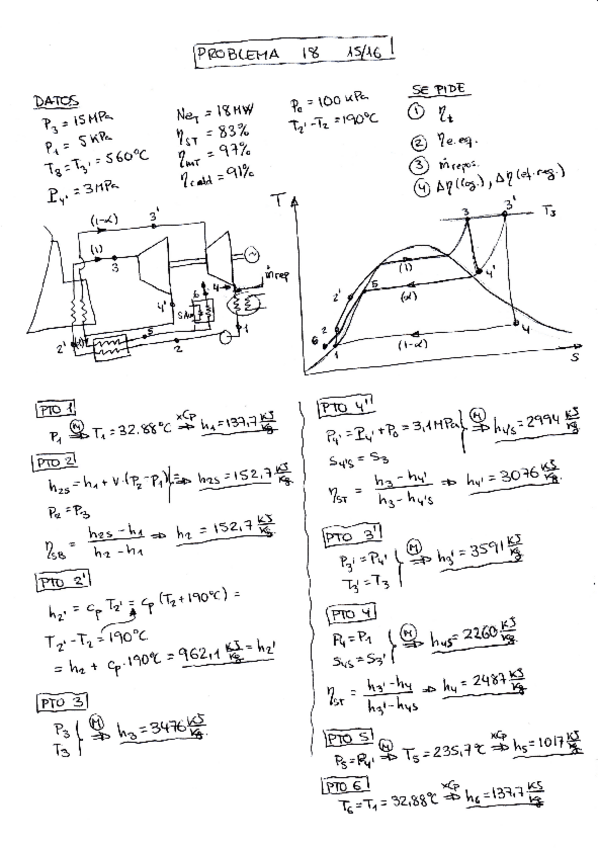 PROBLEMA 18 15/16
DATOS
P3 = 15 MPa
P1 = 5 kPa
T3 = T3' = 560°C
P4' = 3 MPa
Net = 18 MW
ηST = 83%
ηMT = 97%
ηcald = 91%
P0 = 100 kPa
T2' - T2 = 190°C
SE PIDE
① ηt
② ηe.eq.
③ ṁrepos.
④ Δη(rog.), Δη(ef. reg.)
(1-α)
3'
(1)
3
4'
4
ṁrep
6
5
2
1
2'
T
3
3'
T3
4'
(1)
(α)
5
2'
2
6
1
(1-α)
4
S
PTO 1
P1 Ⓜ ⇒ T1 = 32.88°C xCp ⇒ h1 = 137,7 KJ/Kg
PTO 2
h2s = h1 + v·(P2 - P1) ⇒ h2s = 152,7 KJ/Kg
P2 = P3
ηSB = (h2s - h1)/(h2 - h1) ⇒ h2 = 152.7 KJ/Kg
PTO 2'
h2' = cp T2' = cp (T2 + 190°C) =
T2' - T2 = 190°C
= h2 + cp·190°C = 962,1 KJ/Kg = h2'
PTO 3
P3
T3 } Ⓜ ⇒ h3 = 3476 KJ/Kg
PTO 4'
P4' = P4' + P0 = 3,1 MPa
S4's = S3 } Ⓜ ⇒ h4's = 2994 KJ/Kg
ηST = (h3 - h4')/(h3 - h4's) ⇒ h4' = 3076 KJ/Kg
PTO 3'
P3' = P4'
T3' = T3 } Ⓜ ⇒ h3' = 3591 KJ/Kg
PTO 4
P4 = P1
S4s = S3' } Ⓜ ⇒ h4s = 2260 KJ/Kg
ηST = (h3' - h4)/(h3' - h4s) ⇒ h4 = 2487 KJ/Kg
PTO 5
P5 = P4' Ⓜ ⇒ T5 = 235,7°C xCp ⇒ h5 = 1017 KJ/Kg
PTO 6
T6 = T1 = 32,88°C xCp ⇒ h6 = 137,7 KJ/Kg